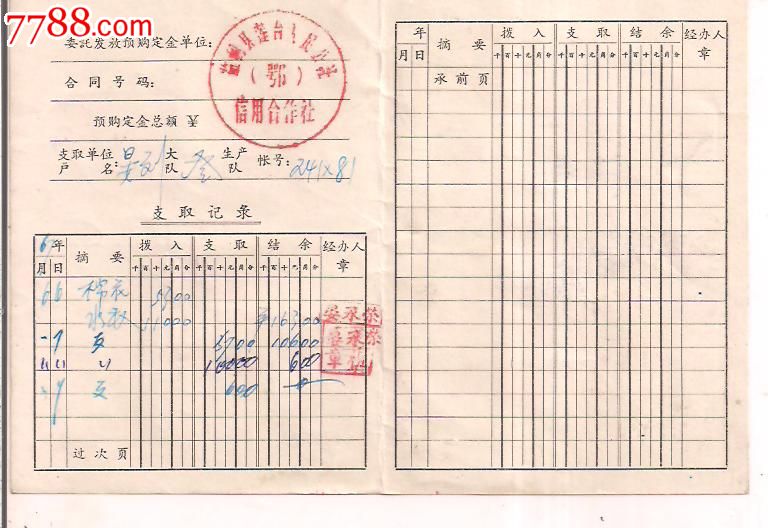 7788.com
委託发放预购定金单位:
合同号码:
预购定金总额 ¥
(鄂)
信用合作社
支取单位 大 生产
户名: 队 队 帐号: 241×81
支取记录
年 摘要 拨入 支取 结余 经办人
月 日 千百十元角分 千百十元角分 千百十元角分 章
6 6 棉衣 5300
11000 16300
支 5700 10600
10000 600
支 600
过次页
年 摘要 拨入 支取 结余 经办人
月 日 千百十元角分 千百十元角分 千百十元角分 章
承前页